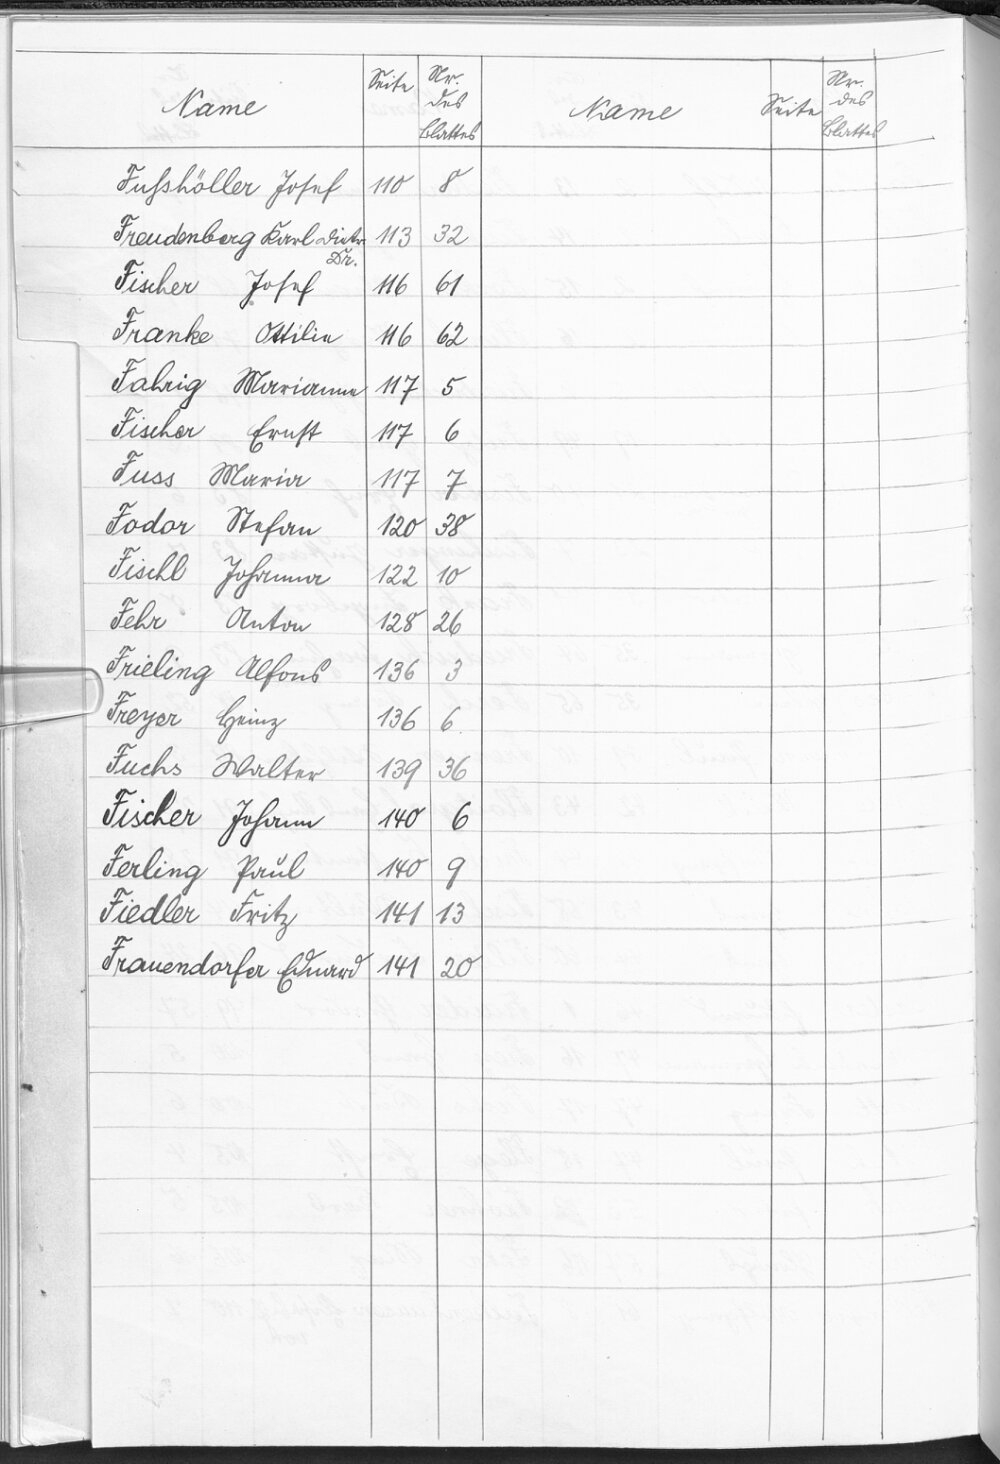 Name Seite Nr. des Blattes Name Seite Nr. des Blattes
Fußhöller Josef 110 8
Freudenberg Karl Dietr. Dr. 113 32
Fischer Josef 116 61
Franke Ottilie 116 62
Fahrig Marianne 117 5
Fischer Ernst 117 6
Fuss Maria 117 7
Fodor Stefan 120 38
Fischl Johanna 122 10
Fehr Anton 128 26
Frieling Alfons 136 3
Freyer Heinz 136 6
Fuchs Walter 139 36
Fischer Johann 140 6
Ferling Paul 140 9
Fiedler Fritz 141 13
Frauendorfer Eduard 141 20